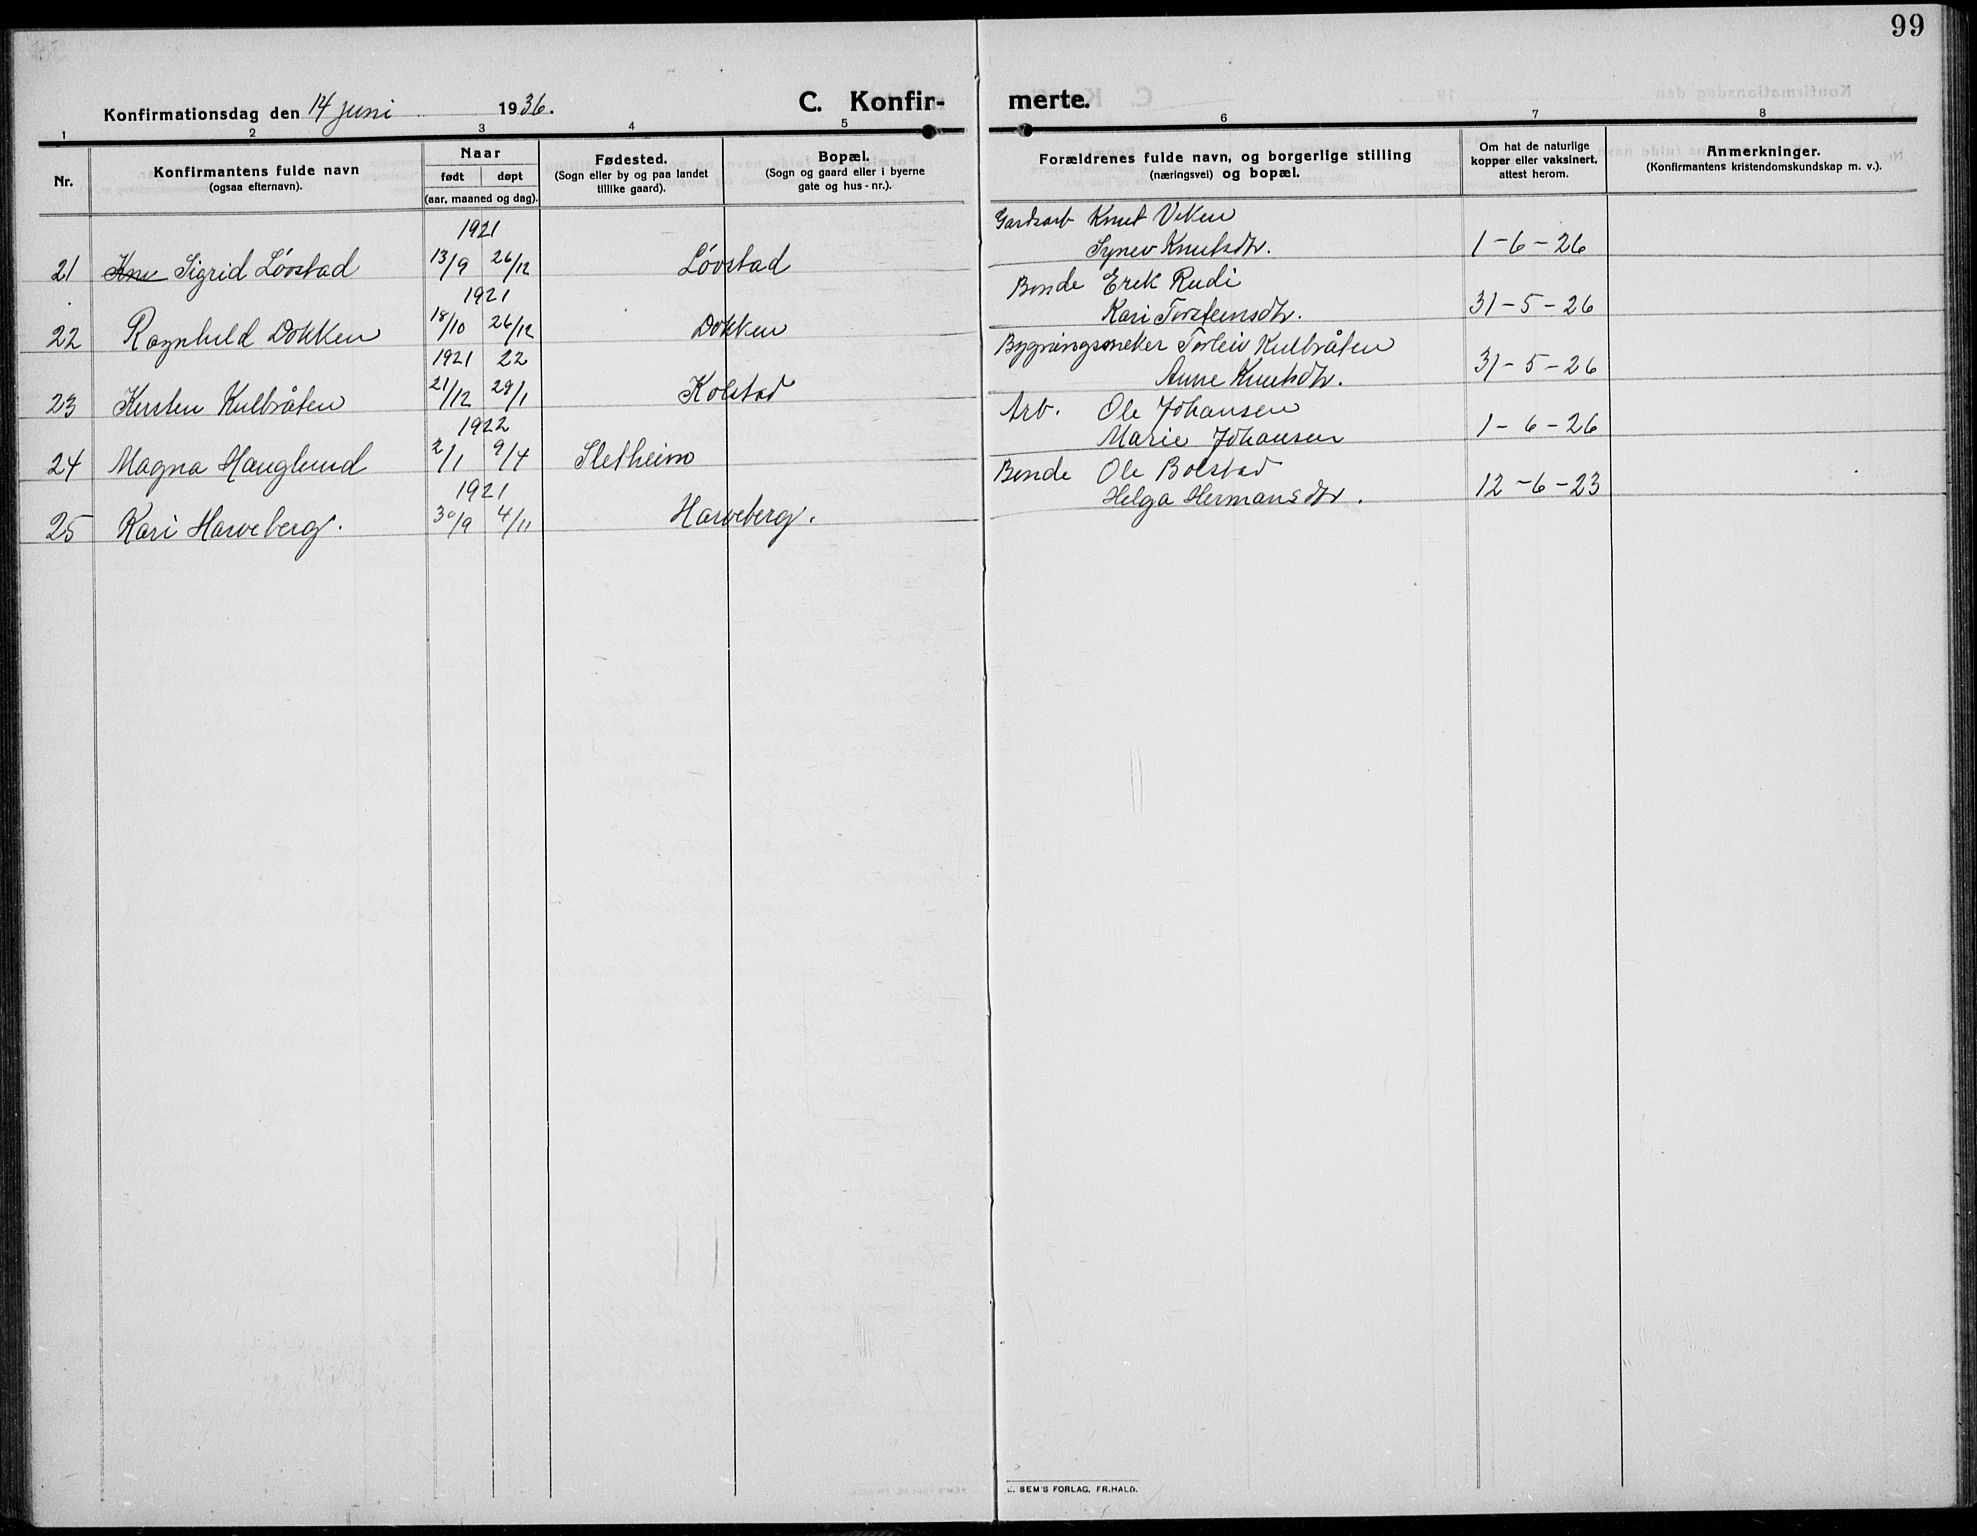 99
Konfirmationsdag den 14 juni 1936.
C. Konfir- merte.
1 2 3 4 5 6 7 8
Nr.
Konfirmantens fulde navn
(ogsaa efternavn).
Naar
født døpt
(aar, maaned og dag).
Fødested.
(Sogn eller by og paa landet
tillike gaard).
Bopæl.
(Sogn og gaard eller i byerne
gate og hus-nr.).
Forældrenes fulde navn, og borgerlige stilling
(næringsvei) og bopæl.
Om hat de naturlige
kopper eller vaksinert,
attest herom.
Anmerkninger.
(Konfirmantens kristendomskundskap m. v.).
1921 Gardsarb Knut Viken
21 Sigrid Lövstad 13/9 26/12 Lövstad Synev Knutsdtr. 1-6-26
1921 Bonde Erik Rudi
22 Ragnhild Dokken 18/10 26/12 Dokken Kari Torsteinsdtr. 31-5-26
1921 22 Bygningssneker Torleiv Kulbråten
23 Kirsten Kulbråten 21/12 29/1 Kolstad Anne Knutsdtr. 31-5-26
1922 Arb. Ole Johansen
24 Magna Hauglund 2/1 9/4 Sletheim Marie Johansen 1-6-26
1921 Bonde Ole Bolstad
25 Kari Harveberg. 30/9 4/11 Harveberg. Helga Hermansdtr. 12-6-23
E. SEM'S FORLAG, FR.HALD.